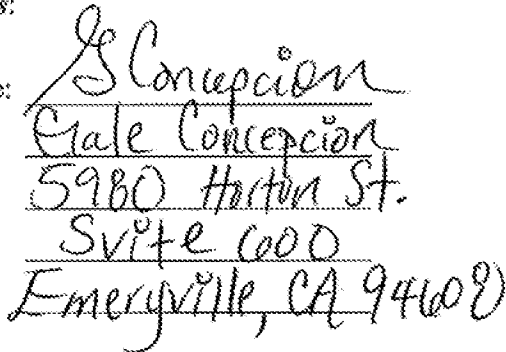 s:
G Concepcion
e:
Gale Concepcion
5980 Horton St.
Suite 600
Emeryville, CA 94608